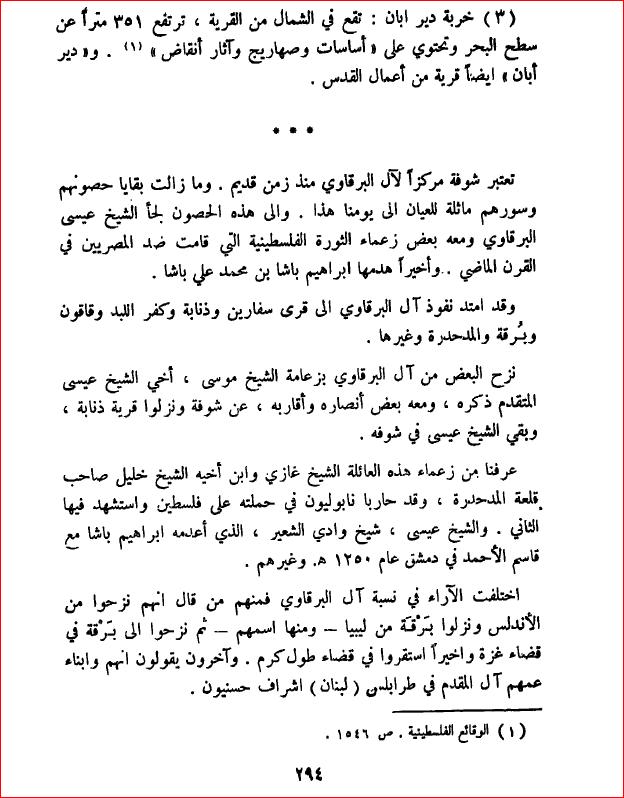 (٣) خربة دير ابان : تقع في الشمال من القرية ، ترتفع ٣٥١ متراً عن
سطح البحر وتحتوي على « أساسات وصهاريج وآثار أنقاض » (١) . و« دير
أبان » ايضاً قرية من أعمال القدس .
* * *
تعتبر شوفة مركزاً لآل البرقاوي منذ زمن قديم . وما زالت بقايا حصونهم
وسورهم ماثلة للعيان الى يومنا هذا . والى هذه الحصون لجأ الشيخ عيسى
البرقاوي ومعه بعض زعماء الثورة الفلسطينية التي قامت ضد المصريين في
القرن الماضي . وأخيراً هدمها ابراهيم باشا بن محمد علي باشا .
وقد امتد نفوذ آل البرقاوي الى قرى سفارين وذنابة وكفر اللبد وقاقون
وبُرقة والمدحدرة وغيرها .
نزح البعض من آل البرقاوي بزعامة الشيخ موسى ، أخي الشيخ عيسى
المتقدم ذكره ، ومعه بعض أنصاره وأقاربه ، عن شوفة ونزلوا قرية ذنابة ،
وبقي الشيخ عيسى في شوفه .
عرفنا من زعماء هذه العائلة الشيخ غازي وابن أخيه الشيخ خليل صاحب
قلعة المدحدرة ، وقد حاربا نابوليون في حملته على فلسطين واستشهد فيها
الثاني . والشيخ عيسى ، شيخ وادي الشعير ، الذي أعدمه ابراهيم باشا مع
قاسم الأحمد في دمشق عام ١٢٥٠ هـ. وغيرهم .
اختلفت الآراء في نسبة آل البرقاوي فمنهم من قال انهم نزحوا من
الأندلس ونزلوا بَرْقَة من ليبيا – ومنها اسمهم – ثم نزحوا الى بَرْقة في
قضاء غزة واخيراً استقروا في قضاء طول كرم . وآخرون يقولون انهم وابناء
عمهم آل المقدم في طرابلس ( لبنان ) اشراف حسنيون .
(١) الوقائع الفلسطينية . ص ١٥٤٦ .
٢٩٤